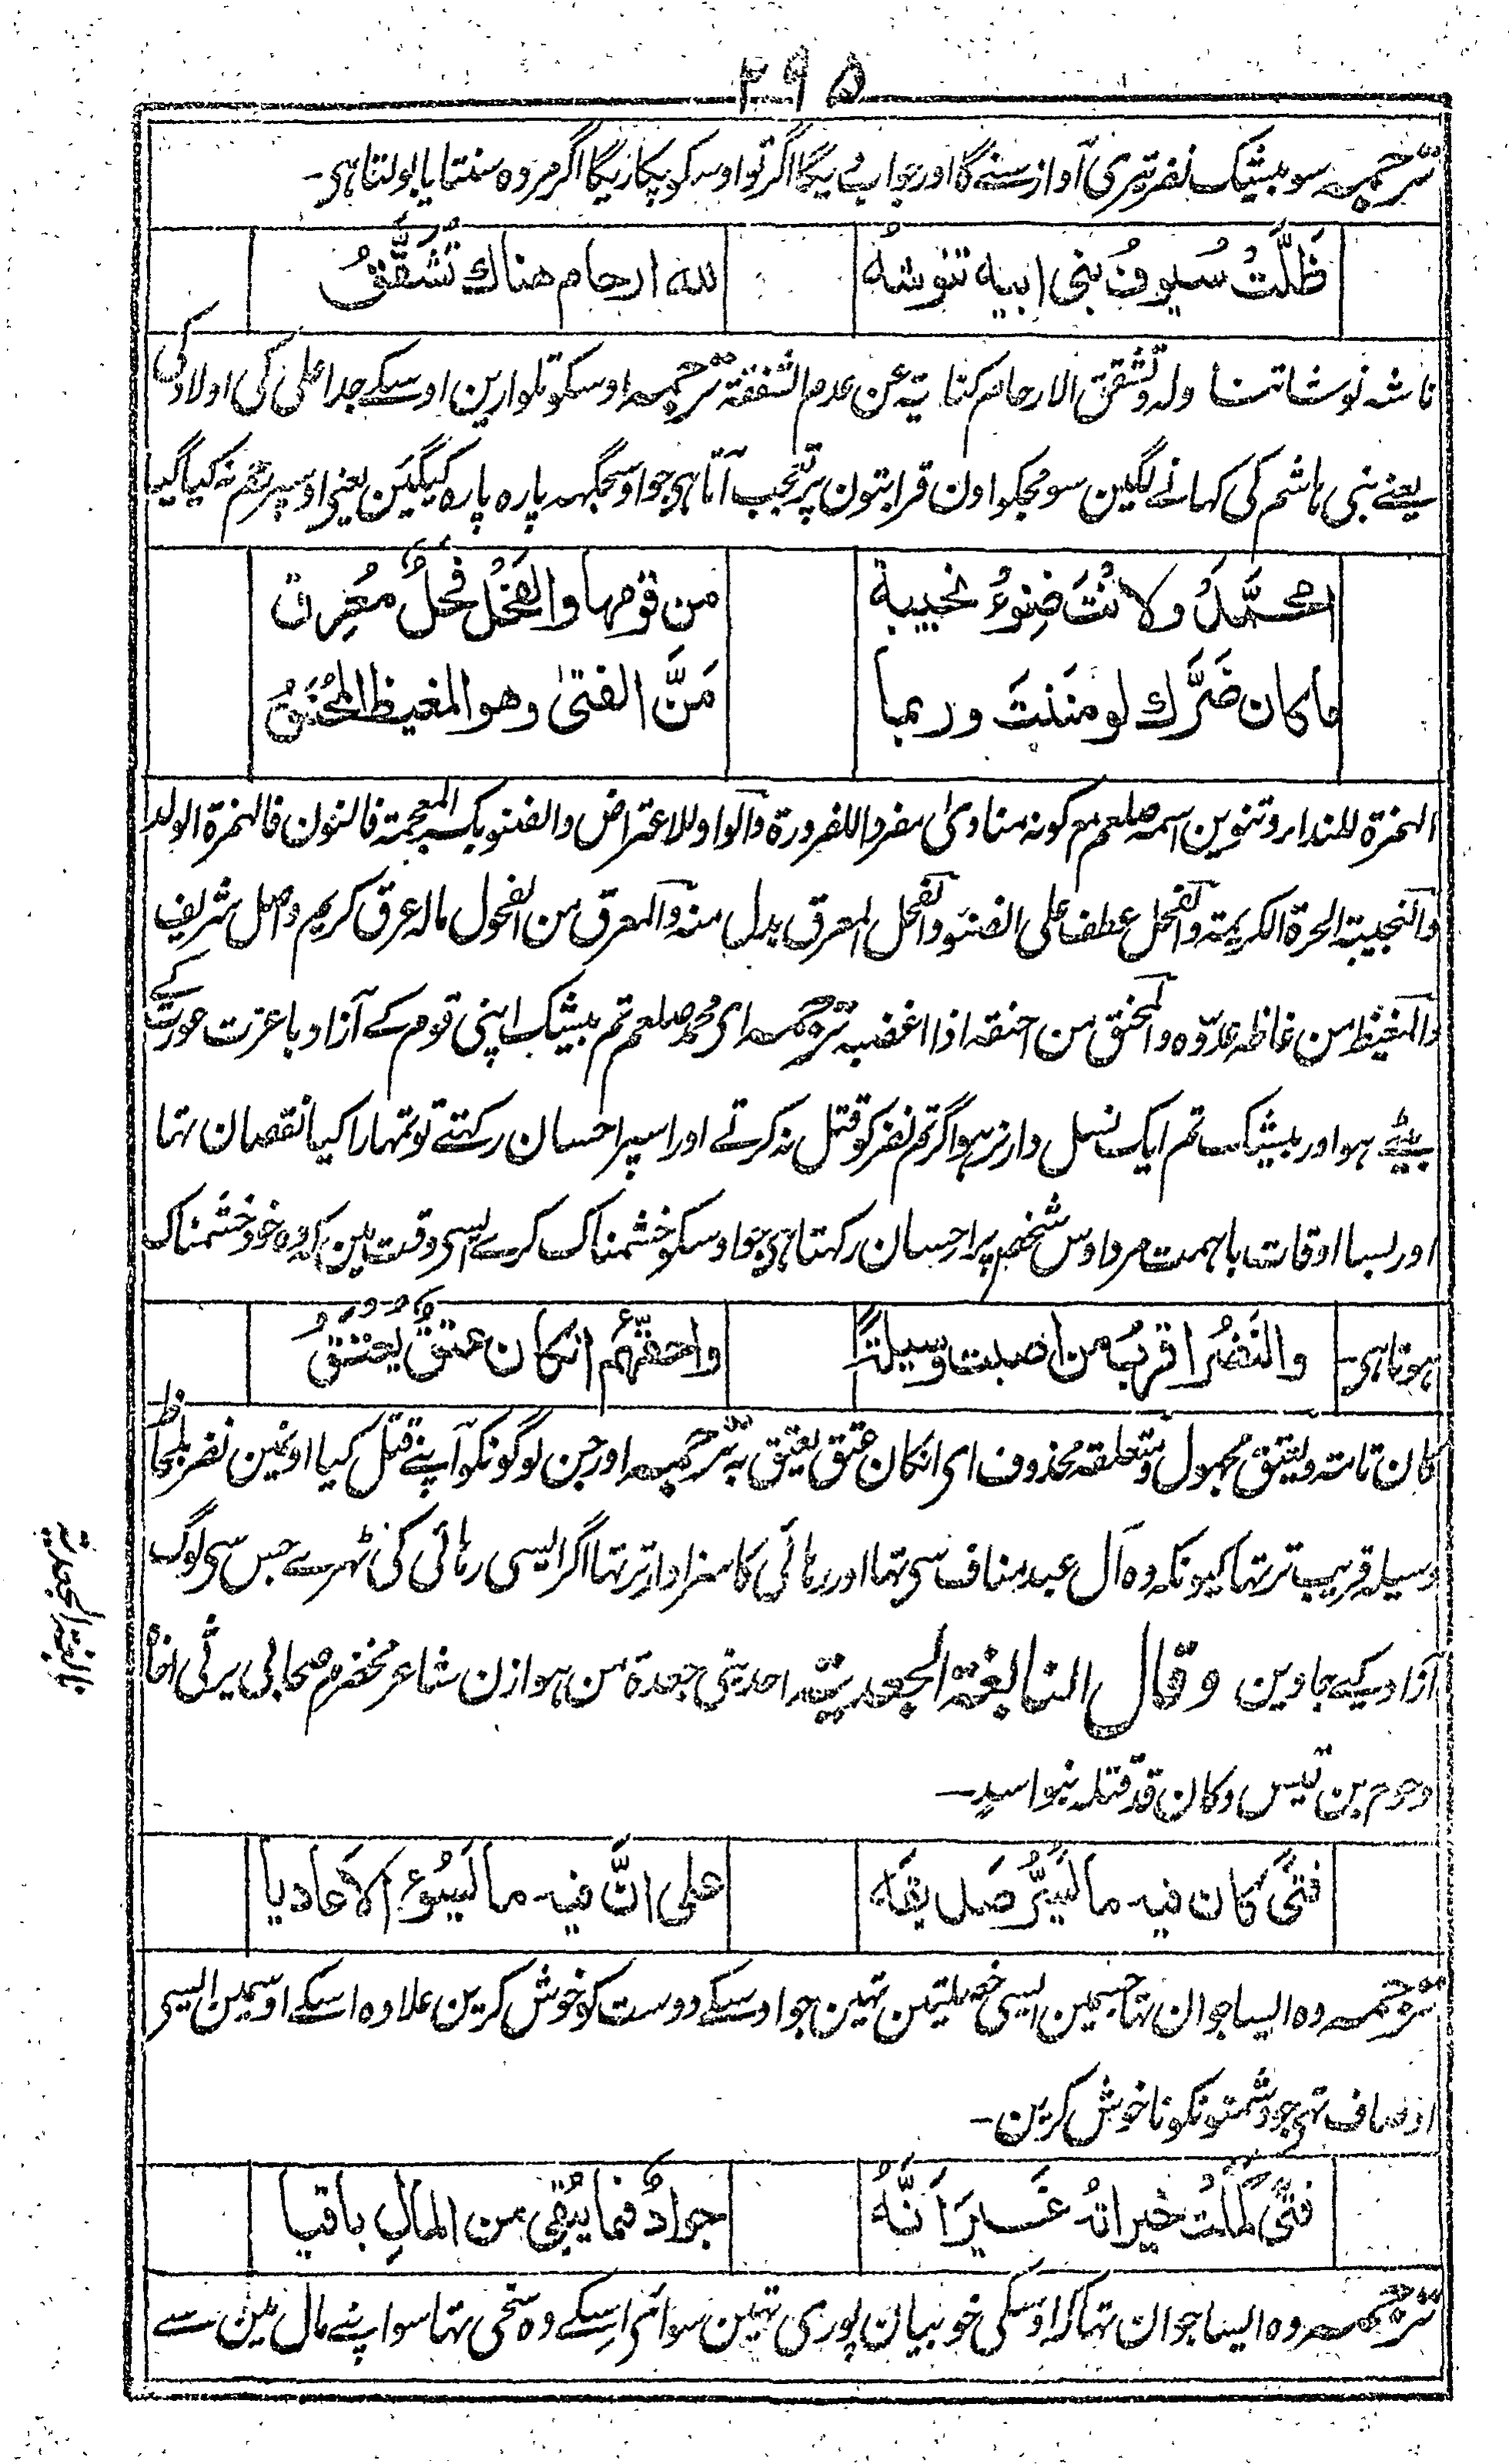 ۲۹۵
ترجمہ سو بیشک نضر تیری آواز سنے گا اور جواب دیگا اگر تو اوسکو پکاریگا اگر مردہ سنتا یا بولتا ہی۔
ظَلَّتْ سُیوفُ بنی ابیه تنوشهُ لله ارحام هناك تُشَقَّقُ
ناشہ نوشا تناولہ وتشقق الارحام کنایۃ عن عدم الشفقۃ ترجمہ اوسکو تلوارین اوسکے جد اعلی کی اولاد کی
یعنے بنی ہاشم کی کہانے لگین سو مجکو اون قرابتون پر تعجب آتا ہی جو اوسجگہہ پارہ پارہ کیگئین یعنی اوسپر رحم نہ کیا گیا
امحمَّدٌ ولانتَ ضِنوءُ نجیبة من قومها والفحْلُ فحلٌ مُعْرِق
ما كان ضَرَّك لو مَنَنتَ وربما مَنَّ الفتیٰ وهو المغیظ المُحْنَقُ
الہمزۃ للنداء وتنوین اسمہ صلعم مع کونہ منادیٰ مفردا للضرورۃ والواو للاعتراض والضنو بکسر المعجمۃ فالنون فالہمزۃ الولد
والنجیبۃ الحرۃ الکریمۃ والفحل عطف علی الضنو والفحل المعرق بدل منہ والمعرق من الفحول مالہ عرق کریم واصل شریف
والمغیظ من غاظہ عدّوہ والمحنق من احنقہ اذا اغضبہ ترجمہ ای محمد صلعم تم بیشک اپنی قوم کے آزاد باعزت عورت کے
بیٹے ہو اور بیشک تم ایک نسل دار نر ہو اگر تم نضر کو قتل نہ کرتے اور اسپر احسان رکہتے تو تمہارا کیا نقصان تہا
اور بسا اوقات باہمت مرد اوس شخص پر احسان رکہتا ہی جو اوسکو خشمناک کرے ایسی وقت مین کہ وہ خود خشمناک
ہوتا ہی۔ والنَضرُ اقربُ من اصبت وسیلةً واحقّهُم ان كان عتقٌ یُعْتَقُ
کان تامتہ ویعتق مجہول ومتعلقہ محذوف ای انکان عتق یعتق بہ ترجمہ اور جن لوگونکو آپنے قتل کیا اونمین نضر بلحاظ
وسیلہ قریب تر تہا کیونکہ وہ آل عبد مناف سی تہا اور رہائی کا سزاوار تر تہا اگر ایسی رہائی کی ٹہرے جس سی لوگ
آزاد کیے جاوین وقال النابغۃ الجعدی احد بنی جعدۃ من ہوازن شاعر مخضرم صحابی یرثی اخاہ
وحوح بن قیس وکان قد قتلہ بنو اسدٍ۔
فتًی كان فیه ما یَسُرُّ صَدیقَه علی انَّ فیه ما یَسُوءُ الاَعادیا
ترجمہ وہ ایسا جوان تہا جسمین ایسی خصلتین تہین جو اوسکے دوست کو خوش کرین علاوہ اسکے اوسمین ایسی
اوصاف تہی جو دشمنونکو ناخوش کرین۔
فتًی كَمُلَتْ خیراتهُ غَیرَ اَنَّهُ جوادٌ فما یُبْقِی من المالِ باقیا
ترجمہ وہ ایسا جوان تہا کہ اوسکی خوبیان پوری تہین سوائی اسکے وہ سخی تہا سو اپنے مال مین سے